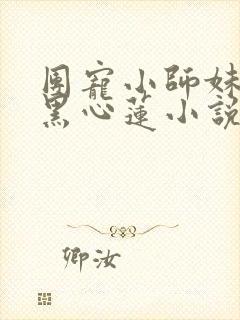 團寵小師妹
黑心蓮小說
卿汝